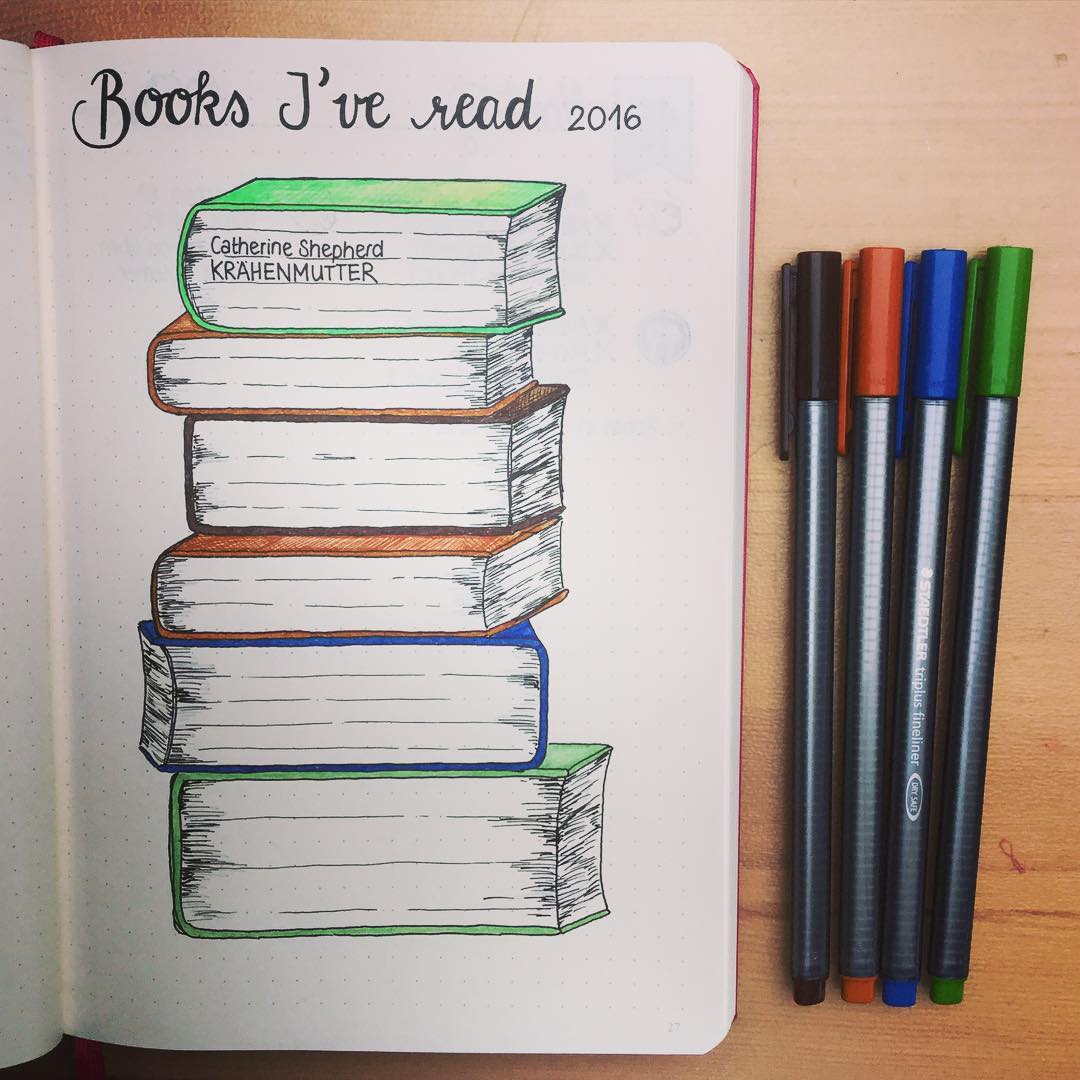 Books I've read 2016
Catherine Shepherd
KRÄHENMUTTER
STAEDTLER triplus fineliner
DRY SAFE
27